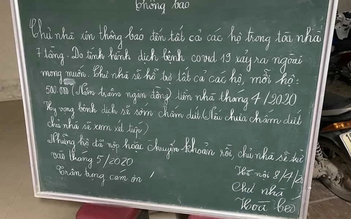 Thông báo
Chủ nhà xin thông báo đến tất cả các hộ trong tòa nhà
7 tầng. Do tình hình dịch bệnh covid 19 xảy ra ngoài
mong muốn. Chủ nhà sẽ hỗ trợ tất cả các hộ, mỗi hộ:
500 000 (Năm trăm ngàn đồng) tiền nhà tháng 4/2020
Hy vọng bệnh dịch sẽ sớm chấm dứt (Nếu chưa chấm dứt
chủ nhà sẽ xem xét tiếp)
Những hộ đã nộp hoặc chuyển khoản rồi, chủ nhà sẽ
vào tháng 5/2020
Trân trọng cảm ơn !
Hà nội 2/4/2
Chủ nhà
Hoà